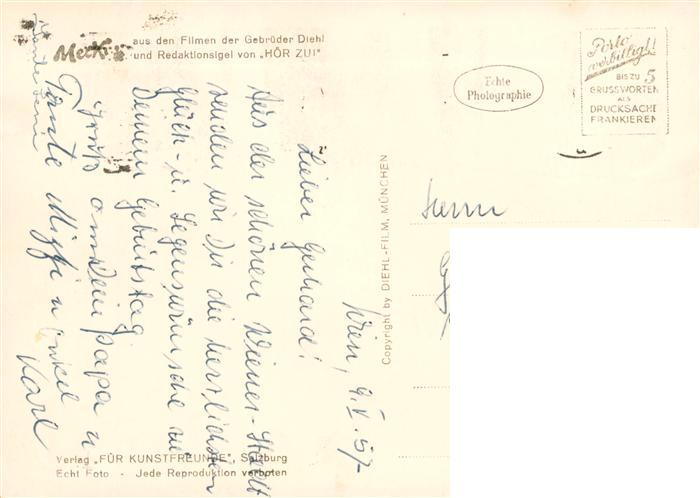 Mecki aus den Filmen der Gebrüder Diehl
und Redaktionsigel von „HÖR ZU!"
Echte
Photographie
Porto
verbilligt!
BIS ZU 5
GRUSSWORTEN
ALS
DRUCKSACHE
FRANKIEREN
Wien, 9.V.57
Lieber Gerhard!
Aus der schönen Wiener-Stadt
senden wir Dir die herzlichsten
Glück- u. Segenswünsche zu
Deinem Geburtstag.
Gruß an Dein Papa u
Tante u Onkel
Karl
Copyright by DIEHL-FILM, MÜNCHEN
Herrn
Verlag „FÜR KUNSTFREUNDE", Salzburg
Echt Foto - Jede Reproduktion verboten